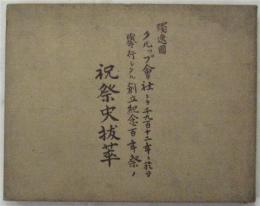 獨逸國
クルップ會社ニテ千九百十二年ニ於テ
擧行シタル創立紀念百年祭ノ
祝祭史拔萃